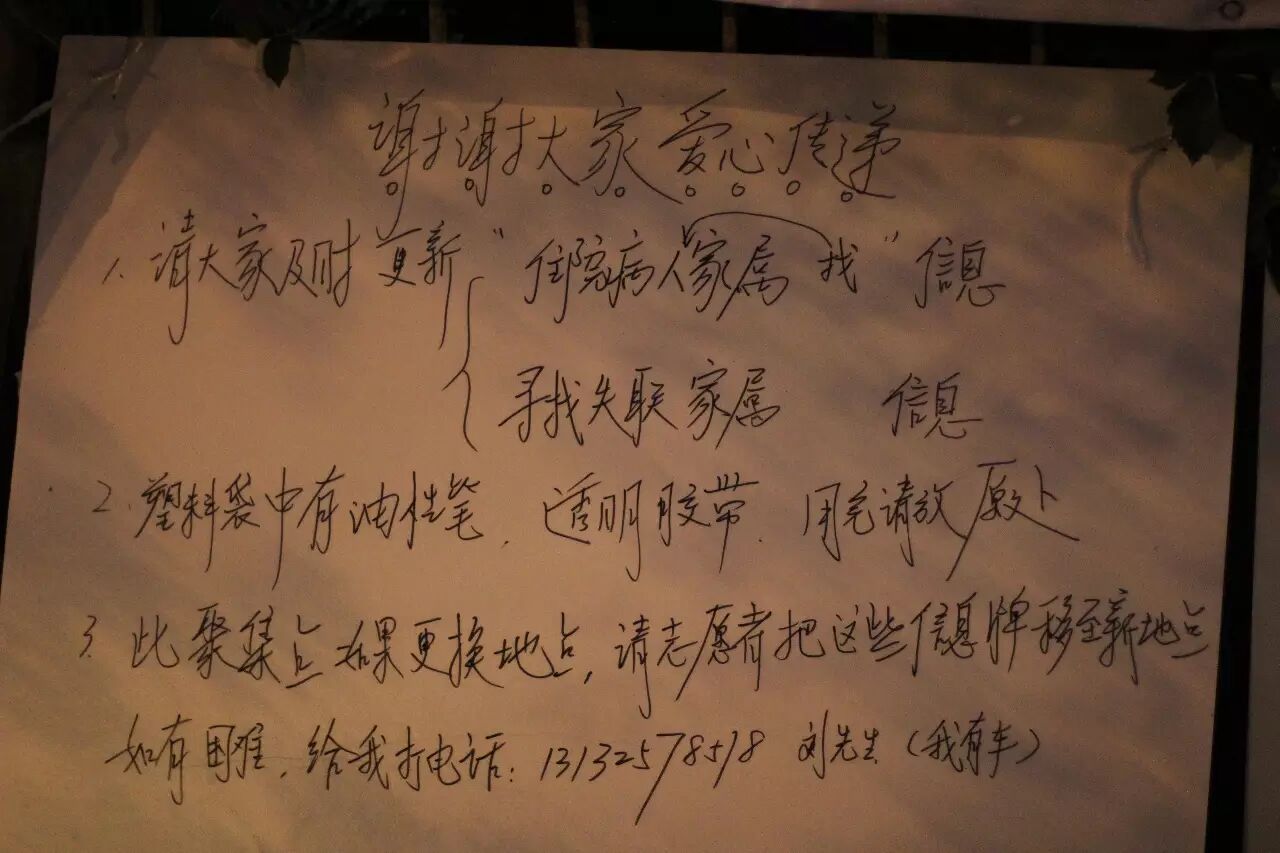 谢谢大家爱心传递
1. 请大家及时更新"住院病人家属找"信息
寻找失联家属 信息
2. 塑料袋中有油性笔. 透明胶带. 用完请放原处
3. 此聚集点如果更换地点, 请志愿者把这些信息牌移至新地点
如有困难, 给我打电话: 13132578578 刘先生 (我有车)